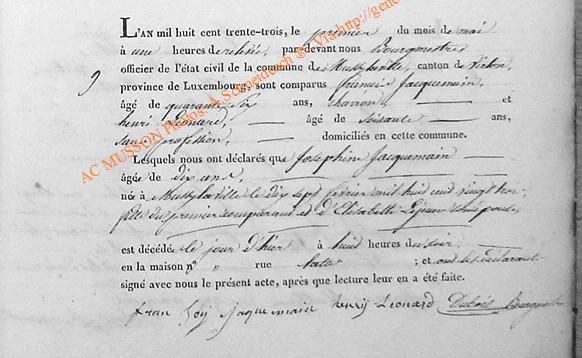 L'AN mil huit cent trente-trois, le premier du mois de mai
à une heures de relevée, par-devant nous Bourgmestre
officier de l'état civil de la commune de Mussy la ville, canton de Virton,
9
province de Luxembourg, sont comparus francois Jacquemain,
âgé de quarante six ans, charron, et
henri Léonard, âgé de soixante ans,
sans profession, domiciliés en cette commune.
Lesquels nous ont déclarés que Josephine Jacquemain
âgée de dix ans
née à Mussy la ville le dix sept février mil huit cent vingt trois
fille du premier comparant et d'Elisabeth Lejeune son épouse,
est décédée le jour d'hier à huit heures du soir,
en la maison n° " rue ; et ont les déclarants
signé avec nous le présent acte, après que lecture leur en a été faite.
fran Soij Jaquemain henry Leonard Dubois Bourgmestre
AC MUSSON Photos A. Schneidesch ® Via http://gene